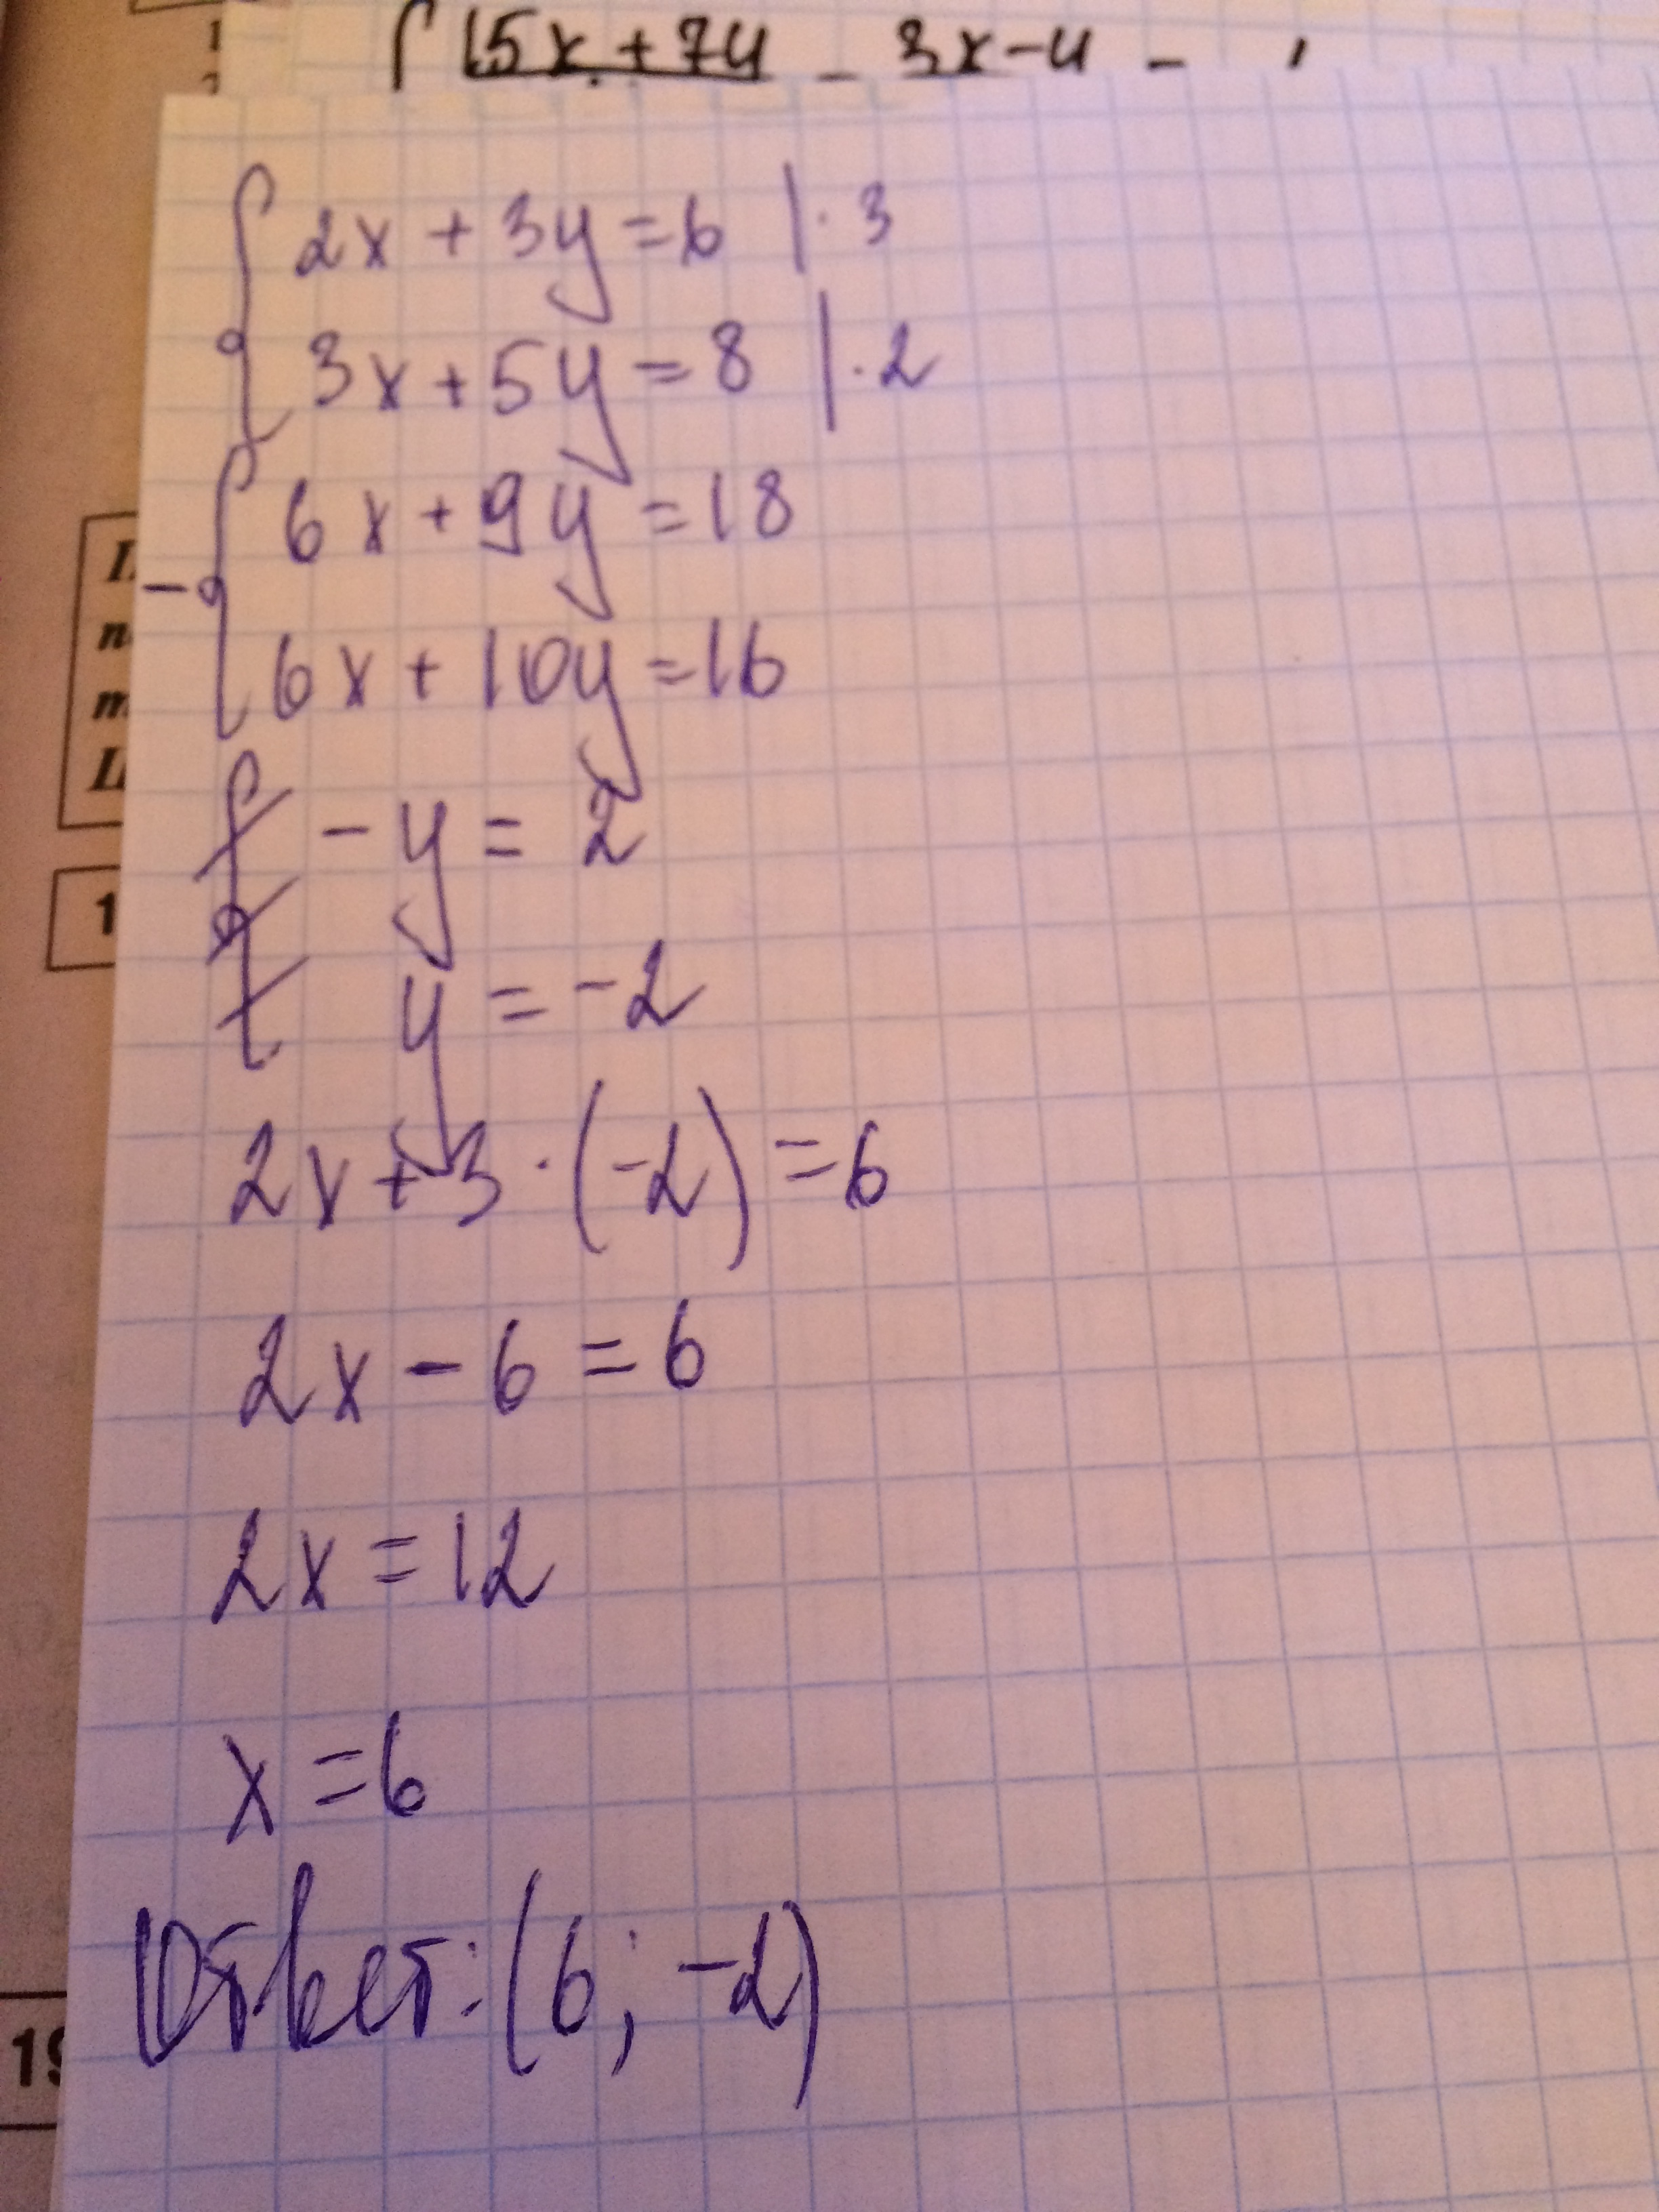 15x + 7y - 3x - y -
{ 2x + 3y = 6 | · 3
3x + 5y = 8 | · 2
- { 6x + 9y = 18
6x + 10y = 16
- y = 2
y = -2
2x + 3 · (-2) = 6
2x - 6 = 6
2x = 12
x = 6
Ответ: (6; -2)
1
19